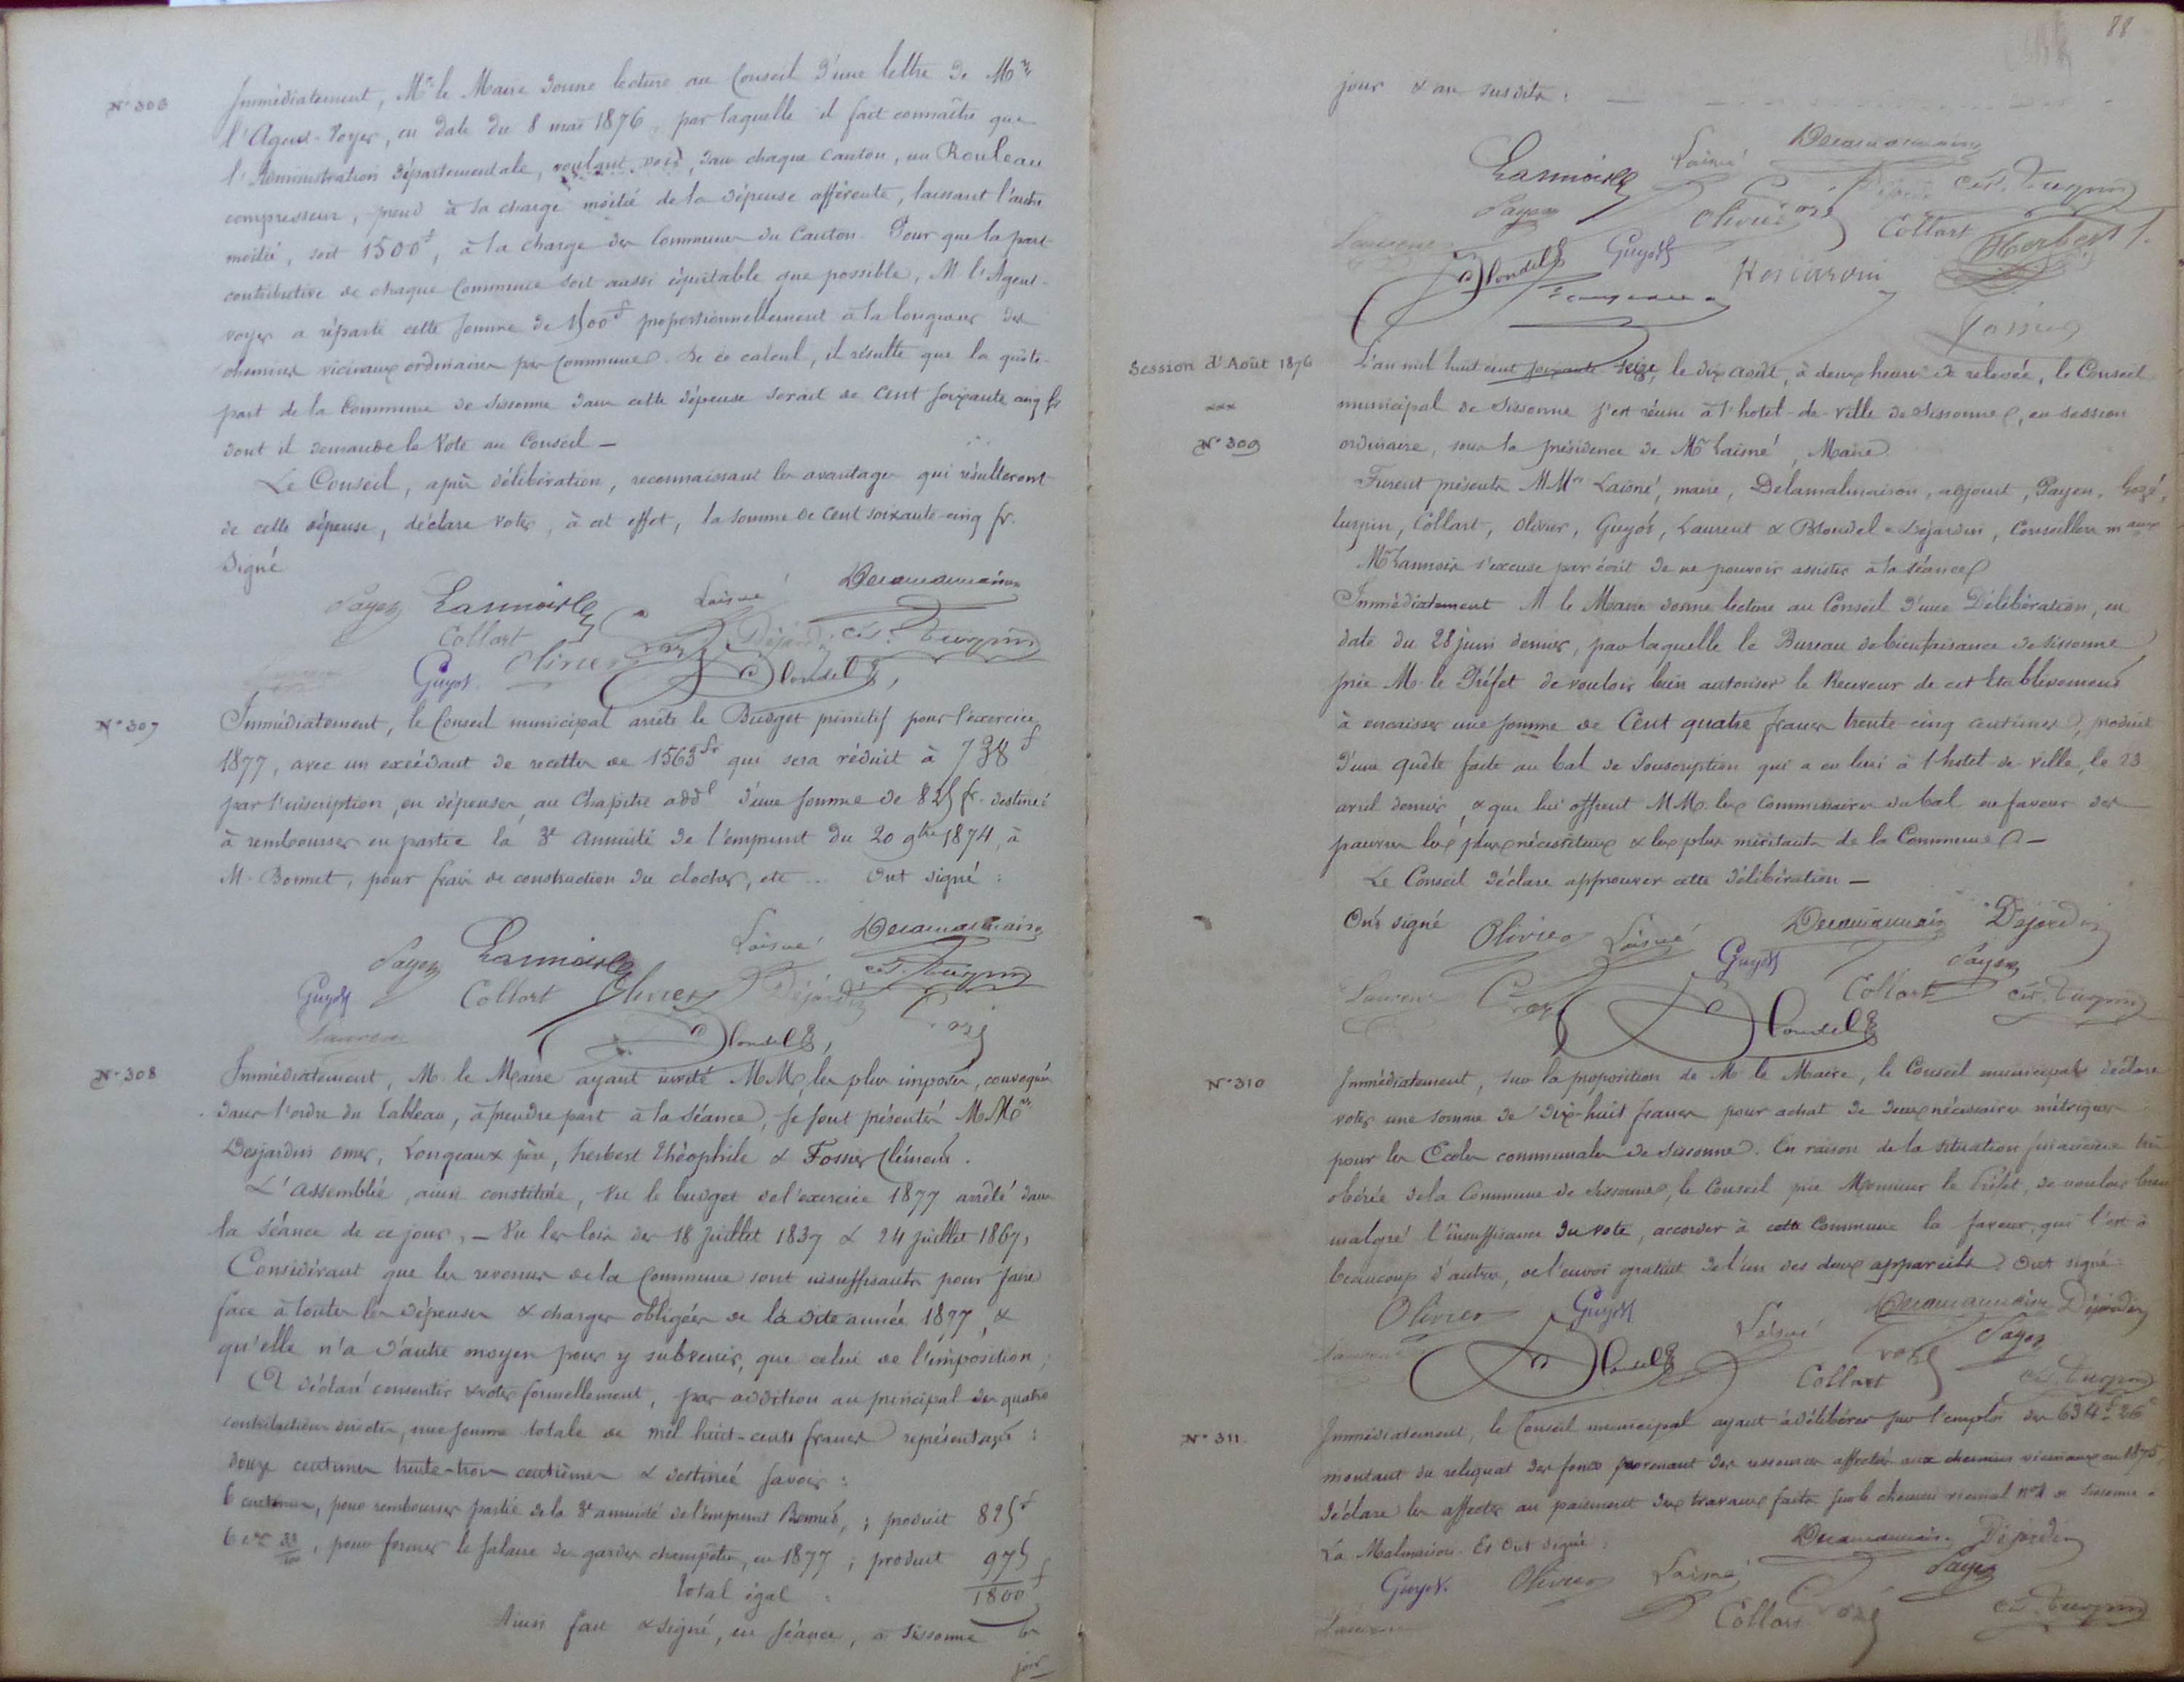 N° 306
Immédiatement, Mr le Maire donne lecture au Conseil d'une lettre de Mr
l'Agent-Voyer, en date du 8 mai 1876, par laquelle il fait connaître que
l'Administration départementale, voulant voir, dans chaque canton, un Rouleau
compresseur, prend à sa charge moitié de la dépense afférente, laissant l'autre
moitié, soit 1500f, à la charge des Communes du Canton. Pour que la part
contributive de chaque Commune soit aussi équitable que possible, M. l'Agent-
voyer a réparti cette somme de 1500f proportionnellement à la longueur des
chemins vicinaux ordinaires par Commune. De ce calcul, il résulte que la quote-
part de la Commune de Sissonne dans cette dépense serait de Cent soixante cinq fr
dont il demande le Vote au Conseil —
Le Conseil, après délibération, reconnaissant les avantages qui résulteront
de cette dépense, déclare voter, à cet effet, la somme de Cent soixante-cinq fr.
Signé
Payen Lannois Laisné Delamalmaison
Collart Dejardin cés. Turpin
Guyot Olivier Blondel
N° 307
Immédiatement, le Conseil municipal arrête le Budget primitif pour l'exercice
1877, avec un excédant de recettes de 1563fr qui sera réduit à 738f
par l'inscription, en dépenses, au Chapitre addl d'une somme de 825 fr. destinée
à rembourser en partie la 3e annuité de l'emprunt du 20 9bre 1874, à
M. Bonnet, pour frais de construction du clocher, etc... Ont signé :
Payen Lannois Laisné Delamalmaison
Guyot Collart Olivier Dejardin cés. Turpin
Laurent Blondel Gozé
N° 308
Immédiatement, M. le Maire ayant invité MM. les plus imposés, convoqués
dans l'ordre du tableau, à prendre part à la séance, se sont présentés MMrs
Desjardins Omer, Longeaux père, Herbert Théophile & Fossier Clément.
L'assemblée, ainsi constituée, Vu le budget de l'exercice 1877 arrêté dans
la séance de ce jour, — Vu les lois des 18 juillet 1837 & 24 juillet 1867,
Considérant que les revenus de la Commune sont insuffisants pour faire
face à toutes les dépenses & charges obligées de la dite année 1877, &
qu'elle n'a d'autre moyen pour y subvenir, que celui de l'imposition ;
A déclaré consentir & voter formellement, par addition au principal des quatre
contributions directes, une somme totale de mil huit-cents francs représentant :
douze centimes trente-trois centièmes & destinée savoir :
6 centimes, pour rembourser partie de la 3e annuité de l'emprunt Bonnet, ; produit 825f
6 cmes 33/100, pour former le salaire des gardes champêtres, en 1877 ; produit 975
Total égal : 1800f
Ainsi fait & signé, en séance, à Sissonne les
jour
88
jour & an susdits.
Lannois Laisné Delamalmaison
Payen Olivier Gozé cés. Turpin
Laurent Blondel Guyot Collart Herbert T.
Desjardin
Fossier
Session d'Août 1876
N° 309
L'an mil huit cent soixante seize, le dix août, à deux heures de relevée, le Conseil
municipal de Sissonne s'est réuni à l'hotel-de-ville de Sissonne, en session
ordinaire, sous la présidence de Mr Laisné, Maire
Furent présents MMrs Laisné, maire, Delamalmaison, adjoint, Payen, Gozé,
Turpin, Collart, Olivier, Guyot, Laurent & Blondel & Dejardin, Conseillers maux
Mr Lannois s'excuse par écrit de ne pouvoir assister à la séance
Immédiatement M. le Maire donne lecture au Conseil d'une Délibération, en
date du 28 juin dernier, par laquelle le Bureau de bienfaisance de Sissonne
prie M. le Préfet de vouloir bien autoriser le Receveur de cet Etablissement
à encaisser une somme de Cent quatre francs trente-cinq centimes, produit
d'une quête faite au bal de Souscription qui a eu lieu à l'hotel-de-ville, le 23
avril dernier, & que lui offrent MM. les Commissaires du bal en faveur des
pauvres les plus nécessiteux & les plus méritants de la Commune —
Le Conseil déclare approuver cette délibération —
Ont signé
Olivier Laisné Delamalmaison Dejardin
Laurent Gozé Guyot Payen
Blondel Collart cés. Turpin
N° 310
Immédiatement, sur la proposition de M. le Maire, le Conseil municipal déclare
voter une somme de dix-huit francs pour achat de deux nécessaires métriques
pour les Ecoles communales de Sissonne. En raison de la situation financière très
obérée de la Commune de Sissonne, le Conseil prie Monsieur le Préfet, de vouloir bien
malgré l'insuffisance du vote, accorder à cette Commune la faveur, qui l'est à
beaucoup d'autres, de l'envoi gratuit de l'un des deux appareils. Ont signé
Olivier Guyot Delamalmaison Dejardin
Laurent Blondel Laisné Gozé Payen
Collart cés. Turpin
N° 311
Immédiatement, le Conseil municipal ayant à délibérer sur l'emploi des 634f 26c
montant du reliquat des fonds provenant des ressources affectées aux chemins vicinaux en 1875,
déclare les affecter au paiement des travaux faits sur le chemin vicinal n°1 de Sissonne à
La Malmaison. Et ont signé :
Delamalmaison Dejardin
Guyot Olivier Laisné Payen
Laurent Collart Gozé cés. Turpin